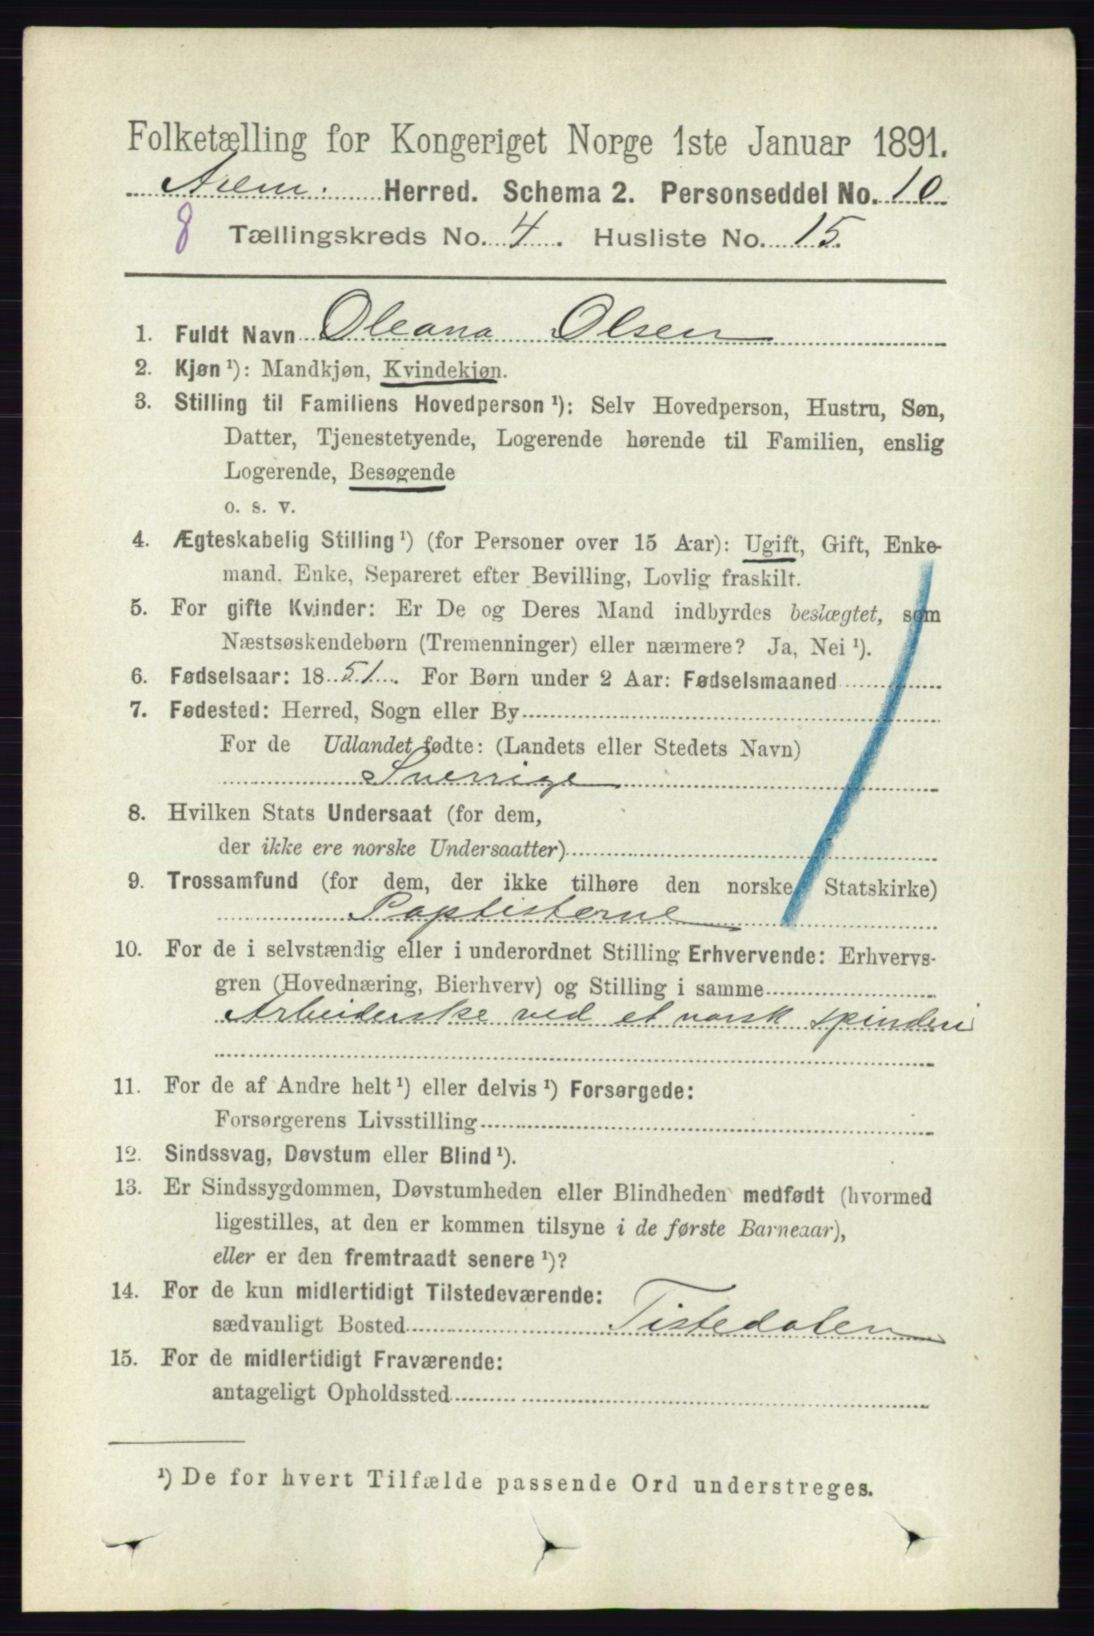 Folketælling for Kongeriget Norge 1ste Januar 1891.
Herred. Schema 2. Personseddel No. 10
8 Tællingskreds No. 4. Husliste No. 15.
1. Fuldt Navn Oleana Olsen
2. Kjøn ¹): Mandkjøn, Kvindekjøn.
3. Stilling til Familiens Hovedperson ¹): Selv Hovedperson, Hustru, Søn,
Datter, Tjenestetyende, Logerende hørende til Familien, enslig
Logerende, Besøgende
o. s. v.
4. Ægteskabelig Stilling ¹) (for Personer over 15 Aar): Ugift, Gift, Enke-
mand, Enke, Separeret efter Bevilling, Lovlig fraskilt.
5. For gifte Kvinder: Er De og Deres Mand indbyrdes beslægtet, som
Næstsøskendebørn (Tremenninger) eller nærmere? Ja, Nei ¹).
6. Fødselsaar: 1851. For Børn under 2 Aar: Fødselsmaaned
7. Fødested: Herred, Sogn eller By
For de Udlandet fødte: (Landets eller Stedets Navn)
Sverrige
8. Hvilken Stats Undersaat (for dem,
der ikke ere norske Undersaatter)
9. Trossamfund (for dem, der ikke tilhøre den norske Statskirke)
Paptisterne
10. For de i selvstændig eller i underordnet Stilling Erhvervende: Erhvervs-
gren (Hovednæring, Bierhverv) og Stilling i samme
Arbeiderske ved et norsk spinderi
11. For de af Andre helt ¹) eller delvis ¹) Forsørgede:
Forsørgerens Livsstilling
12. Sindssvag, Døvstum eller Blind ¹).
13. Er Sindssygdommen, Døvstumheden eller Blindheden medfødt (hvormed
ligestilles, at den er kommen tilsyne i de første Barneaar),
eller er den fremtraadt senere ¹)?
14. For de kun midlertidigt Tilstedeværende:
sædvanligt Bosted Tistedalen
15. For de midlertidigt Fraværende:
antageligt Opholdssted
¹) De for hvert Tilfælde passende Ord understreges.